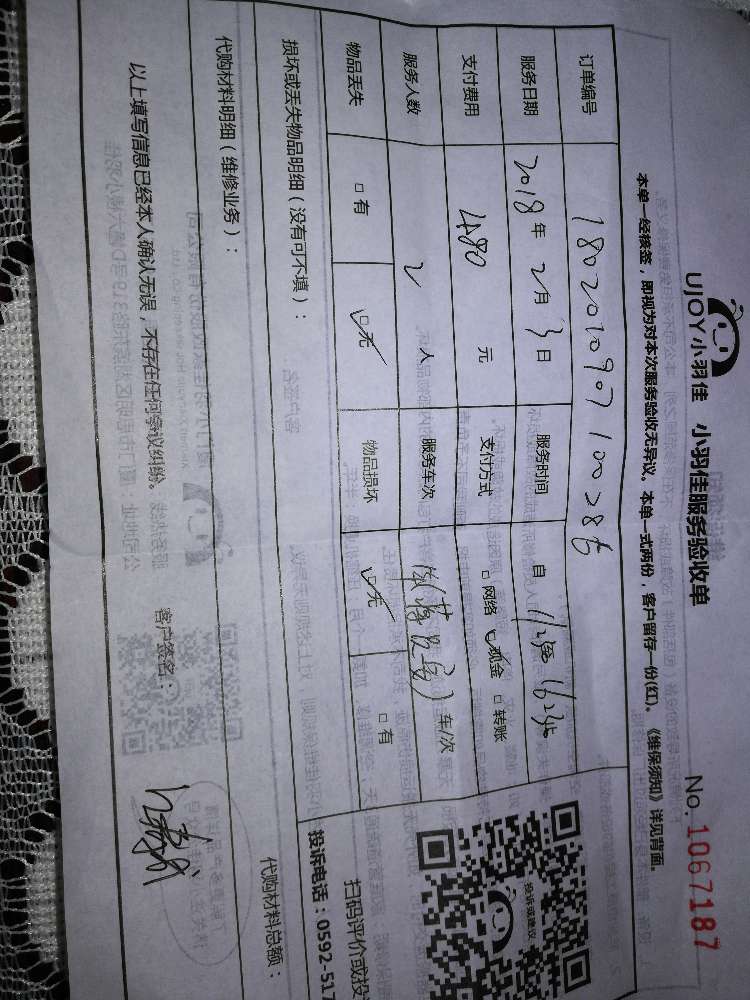 UJOY小羽佳 小羽佳服务验收单
No. 1067187
本单一经核签，即视为对本次服务验收无异议。本单一式两份，客户留存一份(红)。《维保须知》详见背面。
订单编号 180201090710028
服务日期 2018年 2月 3日 服务时间 自
支付费用 480 元 支付方式 □网络 ☑现金 □转账
服务人数 2 人 服务车次 车/次
物品丢失 □有 ☑无 物品损坏 ☑无 □有
损坏或丢失物品明细（没有可不填）：
代购材料明细（维修业务）： 代购材料总额：
投诉或建议
扫码评价或投
投诉电话：0592-517
以上填写信息已经本人确认无误，不存在任何争议纠纷。 客户签名：